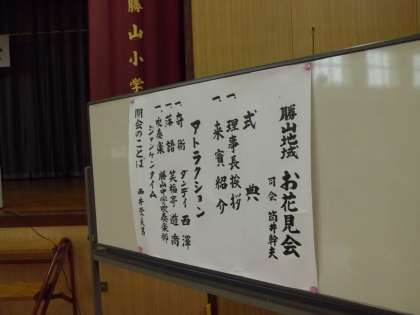 勝山小学
勝山地域 お花見会
司会 筒井幹夫
式典
一、理事長挨拶
一、来賓紹介
アトラクション
一、奇術 ダンディ西澤
一、落語 笑福亭遊喬
一、吹奏楽 勝山中学吹奏楽部
ジャンケンタイム
閉会のことば